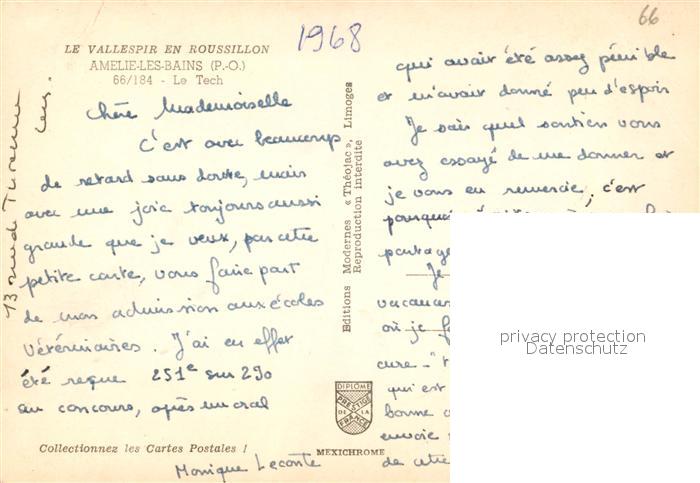 LE VALLESPIR EN ROUSSILLON
AMELIE-LES-BAINS (P.-O.)
66/184 - Le Tech
1968
66
Chère Mademoiselle
C'est avec beaucoup
de retard sans doute, mais
avec une joie toujours aussi
grande que je veux, par cette
petite carte, vous faire part
de mon admission aux écoles
Vétérinaires. J'ai en effet
été reçue 251e sur 290
au concours, après un oral
qui avait été assez pénible
et m'avait donné peu d'espoir
Je sais quel soutien vous
avez essayé de me donner et
je vous en remercie; c'est
pourquoi
partage
Je
vacances
où je
cure
qui est
bonne
envoie
de cette
Monique Leconte
13 rue de Turenne
Editions Modernes « Théojac », Limoges
Reproduction interdite
DIPLOME
PRESTIGE
DE LA
FRANCE
MEXICHROME
Collectionnez les Cartes Postales !
privacy protection
Datenschutz